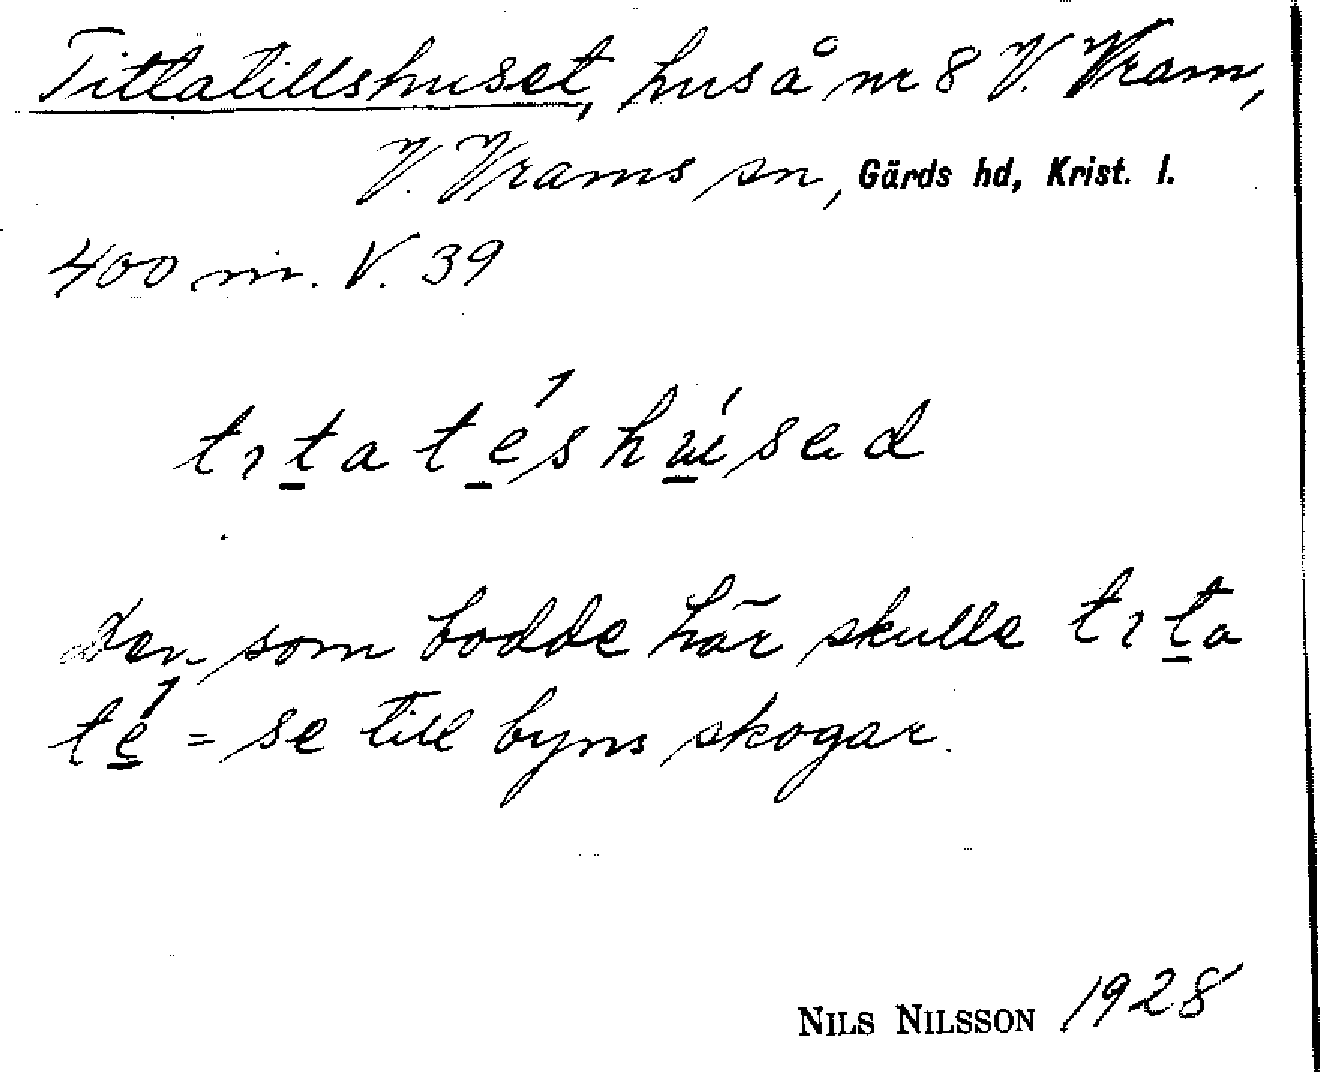 Tittatillshuset, hus å nr 8 V. Vram,
V. Vrams sn, Gärds hd, Krist. l.
400 m. V. 39
tıṯaté̱shúse̱d
den som bodde här skulle tıṯa
té̱ = se till byns skogar.
NILS NILSSON 1928